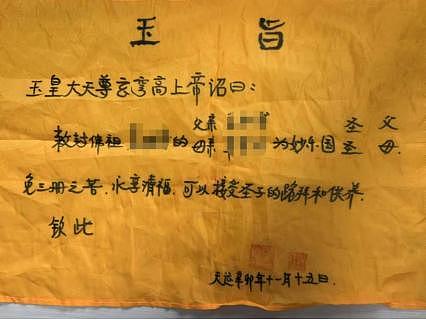 玉旨
玉皇大天尊玄穹高上帝诏曰：
敕封佛祖 的父亲 圣父
母亲 为妙乐国圣母.
免三册之苦.永享清福,可以接受圣子的跪拜和供养.
钦此
天运辛卯年十一月十五日.